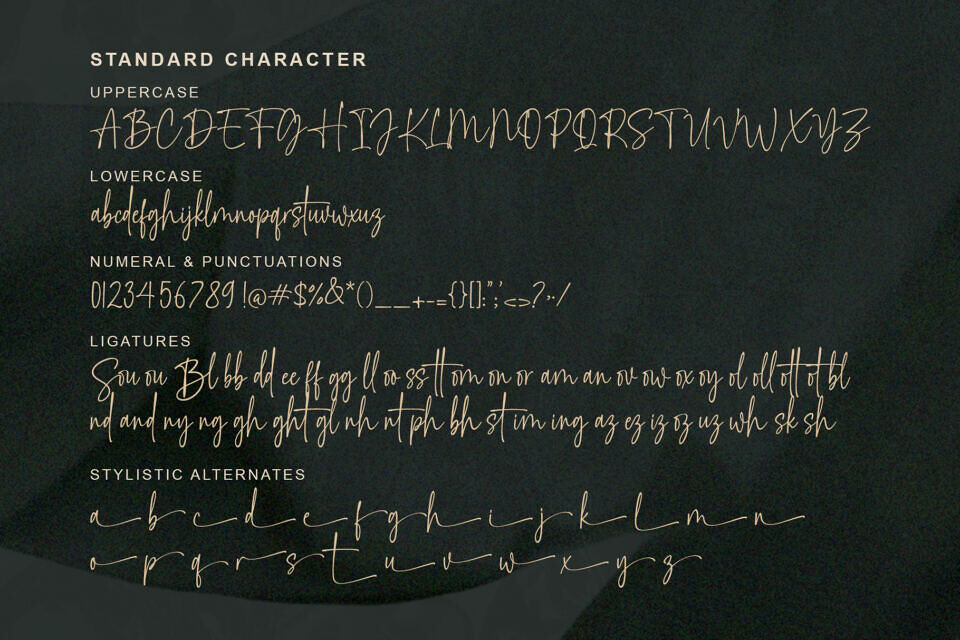 STANDARD CHARACTER
UPPERCASE
ABCDEFGHIJKLMNOPQRSTUVWXYZ
LOWERCASE
abcdefghijklmnopqrstuvwxyz
NUMERAL & PUNCTUATIONS
0123456789 !@#$%&*()__+-={}[]:";'<>?,./
LIGATURES
Sou ou Bl bb dd ee ff gg ll oo ss tt om on or am an ov ow ox oy ol oll ott ot bl
nd and ny ng gh ght gl nh nt ph bh st im ing az ez iz oz uz wh sk sh
STYLISTIC ALTERNATES
a b c d e f g h i j k l m n
o p q r s t u v w x y z